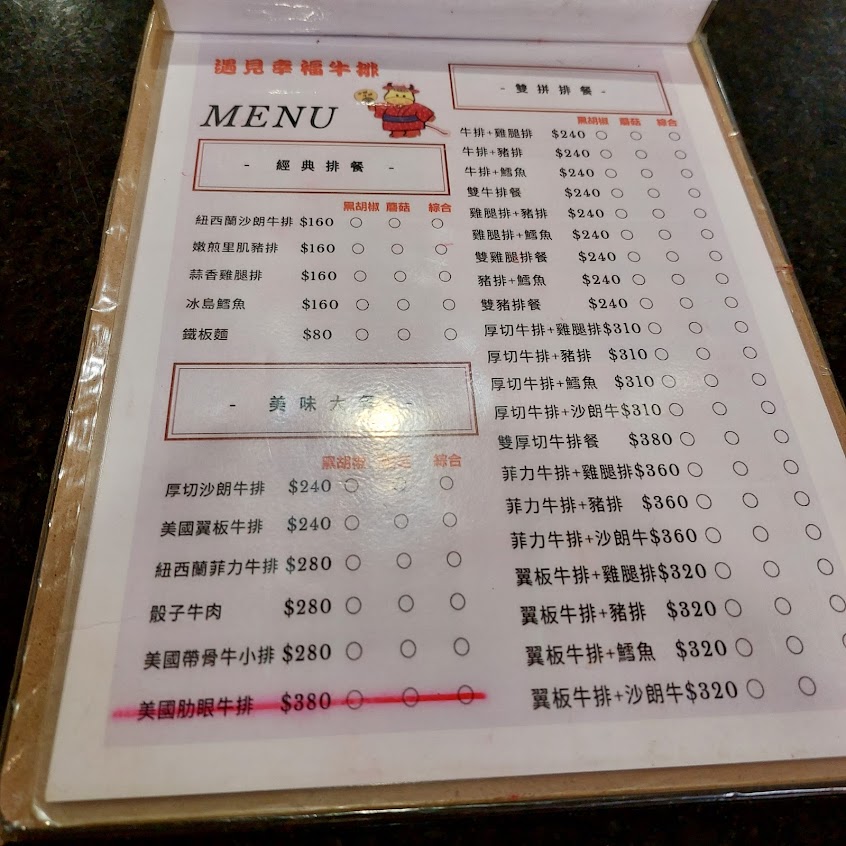 遇見幸福牛排
MENU
- 經典排餐 -
黑胡椒 蘑菇 綜合
紐西蘭沙朗牛排 $160
嫩煎里肌豬排 $160
蒜香雞腿排 $160
冰島鱈魚 $160
鐵板麵 $80
- 美味大 -
黑胡椒 綜合
厚切沙朗牛排 $240
美國翼板牛排 $240
紐西蘭菲力牛排 $280
骰子牛肉 $280
美國帶骨牛小排 $280
美國肋眼牛排 $380
- 雙拼排餐 -
黑胡椒 蘑菇 綜合
牛排+雞腿排 $240
牛排+豬排 $240
牛排+鱈魚 $240
雙牛排餐 $240
雞腿排+豬排 $240
雞腿排+鱈魚 $240
雙雞腿排餐 $240
豬排+鱈魚 $240
雙豬排餐 $240
厚切牛排+雞腿排$310
厚切牛排+豬排 $310
厚切牛排+鱈魚 $310
厚切牛排+沙朗牛$310
雙厚切牛排餐 $380
菲力牛排+雞腿排$360
菲力牛排+豬排 $360
菲力牛排+沙朗牛$360
翼板牛排+雞腿排$320
翼板牛排+豬排 $320
翼板牛排+鱈魚 $320
翼板牛排+沙朗牛$320